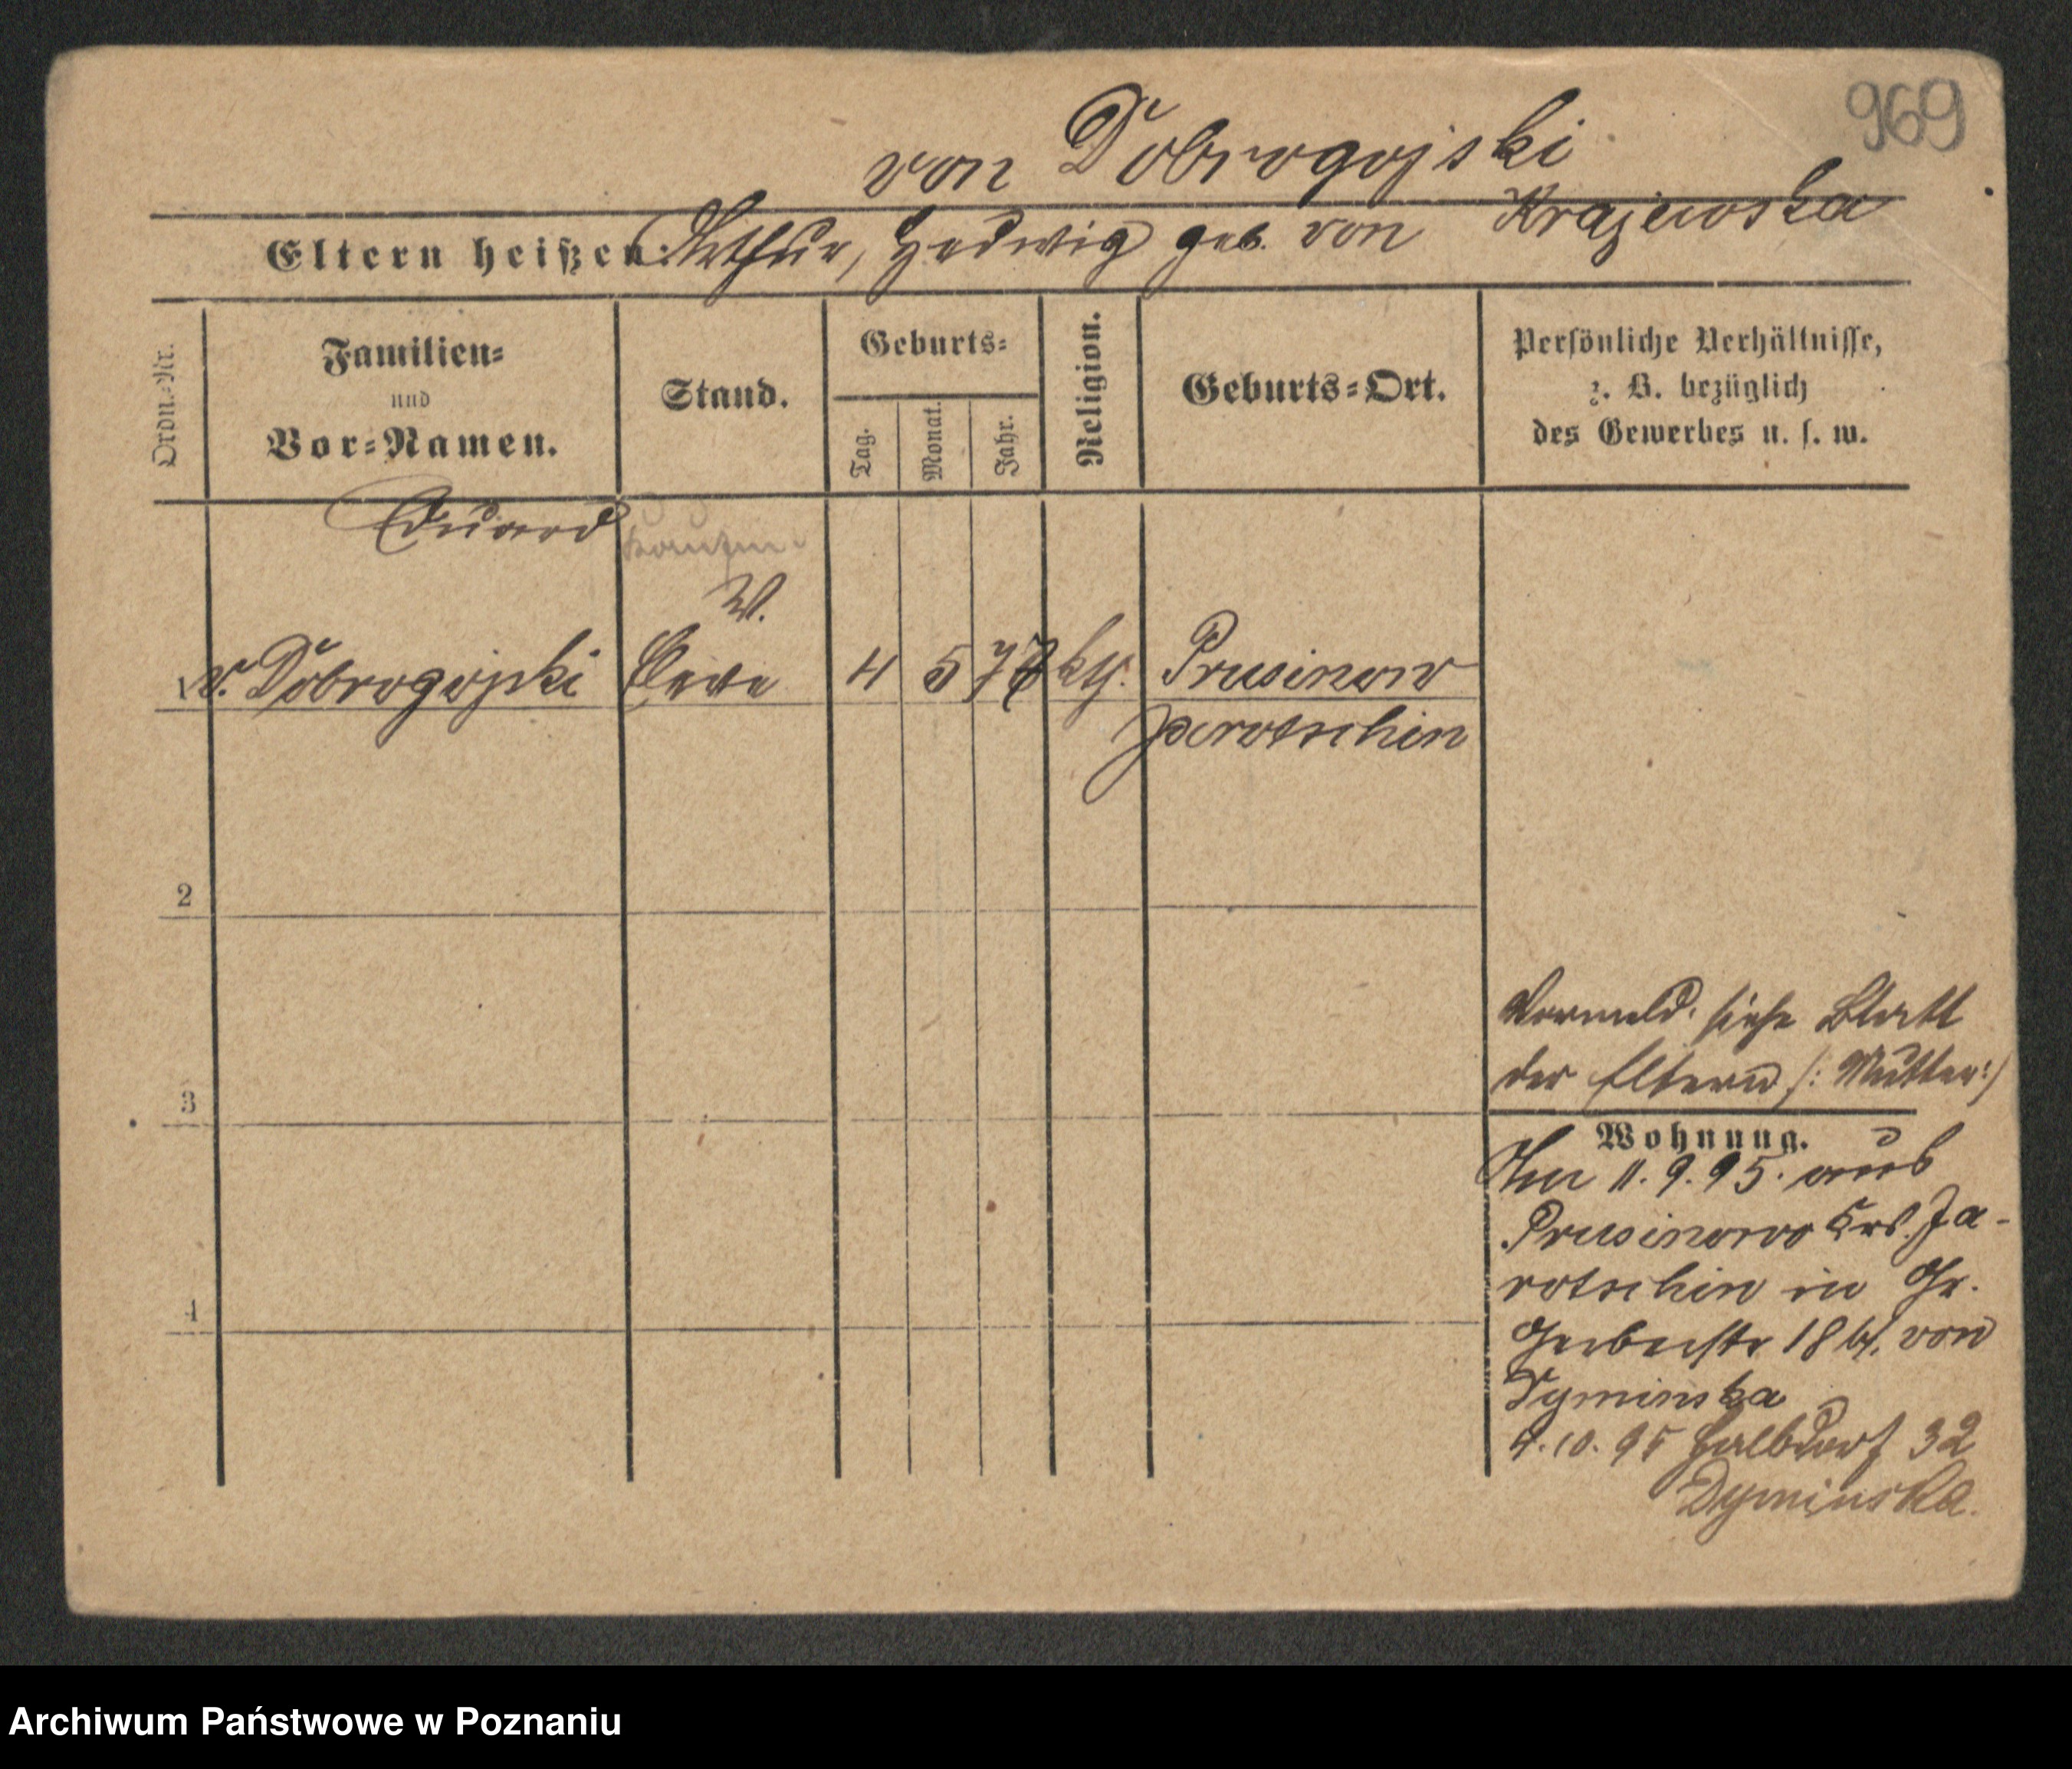 969
von Dobrogojski
Eltern heißen: Arthur, Hedwig geb. von Krajewska
Ordn.=Nr.
Familien=
und
Vor=Namen.
Stand.
Geburts=
Tag.
Monat.
Jahr.
Religion.
Geburts=Ort.
Persönliche Verhältnisse,
z. B. bezüglich
des Gewerbes u. s. w.
Eduard
W.
1 v. Dobrogojski Eleve 4 5 77 kth. Prusinow
Jarotschin
2
3
4
Vormeld. siehe Blatt
der Eltern /: Mutter :/
Wohnung.
Am 11. 9. 95. aus
Prusinowo Krs. Ja-
rotschin in Gr.
Gerberstr 18 b/. von
Dyminska
4. 10. 95 Halbdorf 32
Dyminska.
Archiwum Państwowe w Poznaniu